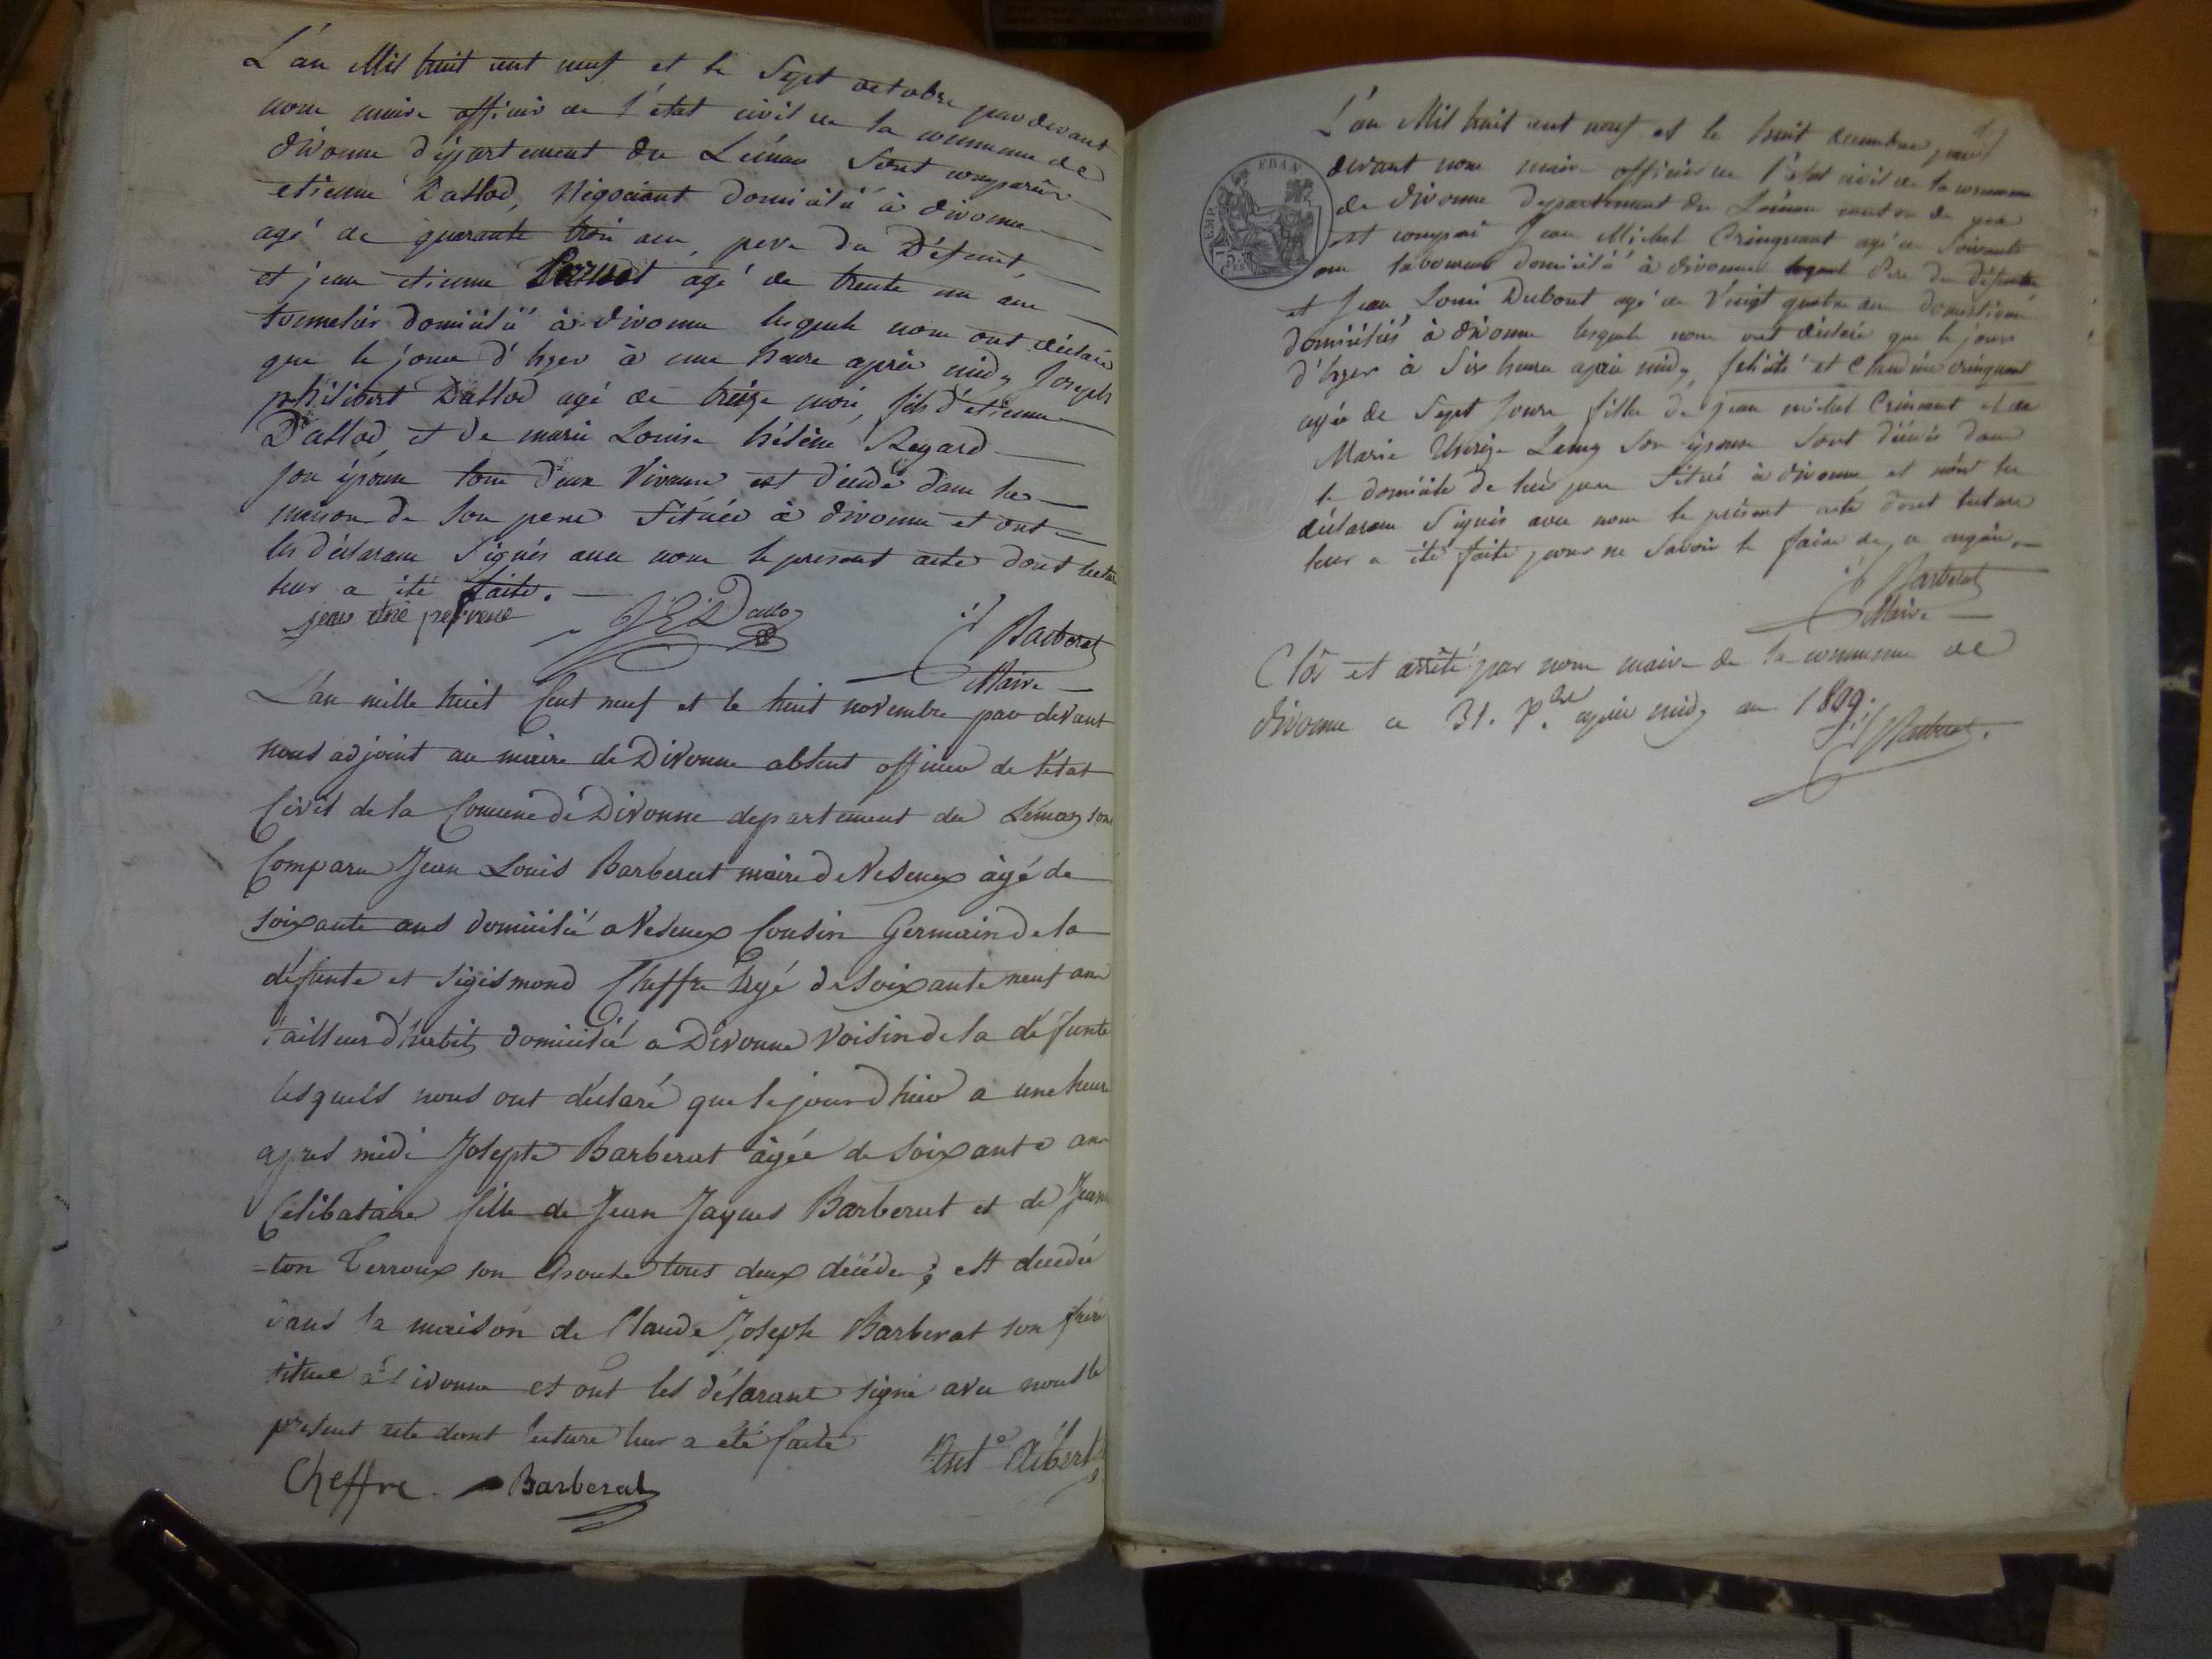 L'an Mil huit cent neuf et le Sept octobre par devant
nous maire officier de l'état civil de la commune de
divonne département du Léman Sont comparus
etienne Dallod, Négociant domicilié à divonne
agé de quarante trois ans, pere du Défunt,
et jean etienne agé de trente un ans
tonnelier domicilié à divonne lesquels nous ont déclaré
que le jour d'hyer à une heure après midy Joseph
philibert Dallod agé de treize mois, fils d'etienne
Dallod et de marie Louise hélène Regard
son épouse tous deux Vivans est décédé dans la
maison de son pere Située à divonne et ont
les déclarans Signés avec nous le present acte dont lecture
leur a été faite.
Barberat
Maire
L'an mille huit Cent neuf et le huit novembre par devant
nous adjoint au maire de Divonne absent officier de l'état
Civil de la Comune de Divonne departement du Léman son
Comparu Jean Louis Barberat maire de Vesenex âgé de
soixante ans domicilié a Vesenex Cousin Germain de la
défunte et Sigismond Cheffre âgé de soixante neuf ans
tailleur d'habits domicilié a Divonne Voisin de la défunte
lesquels nous ont déclaré que le jour d'hier a une heure
apres midi Josepte Barberat âgée de soixante ans
Celibataire fille de Jean Jaques Barberat et de Jean
-ton Terroux son Epouse tous deux décédés, est décédée
dans la maison de Claude Joseph Barberat son frère
située à Divonne et ont les déclarant signé avec nous le
présent acte dont lecture leur a été faite
Cheffre. Barberat
L'an Mil huit cent neuf et le huit decembre par
devant nous maire officier de l'état civil de la commune
de divonne departement du Léman canton de gex
est comparu Jean Michel Cringneaut agé de Soixante
ans laboureur domicilié à divonne Pere du Défunte
et Jean Louis Dubout agé de Vingt quatre ans domestique
domiciliés à divonne lesquels nous ont déclaré que le jour
d'hyer à Six heures après midy, felicité et Claudine
agée de Sept Jours filles de jean michel et de
Marie son épouse Sont décédés dans
le domicile de leur pere Situé à divonne et n'ont les
déclarans Signés avec nous le présent acte dont lecture
leur a été faite pour ne Savoir le faire de ce enquis.
Barberat
Maire
Clôs et arrêté par nous maire de la commune de
divonne ce 31. après midy an 1809.
Barberat.
EMP FRAN
75 C